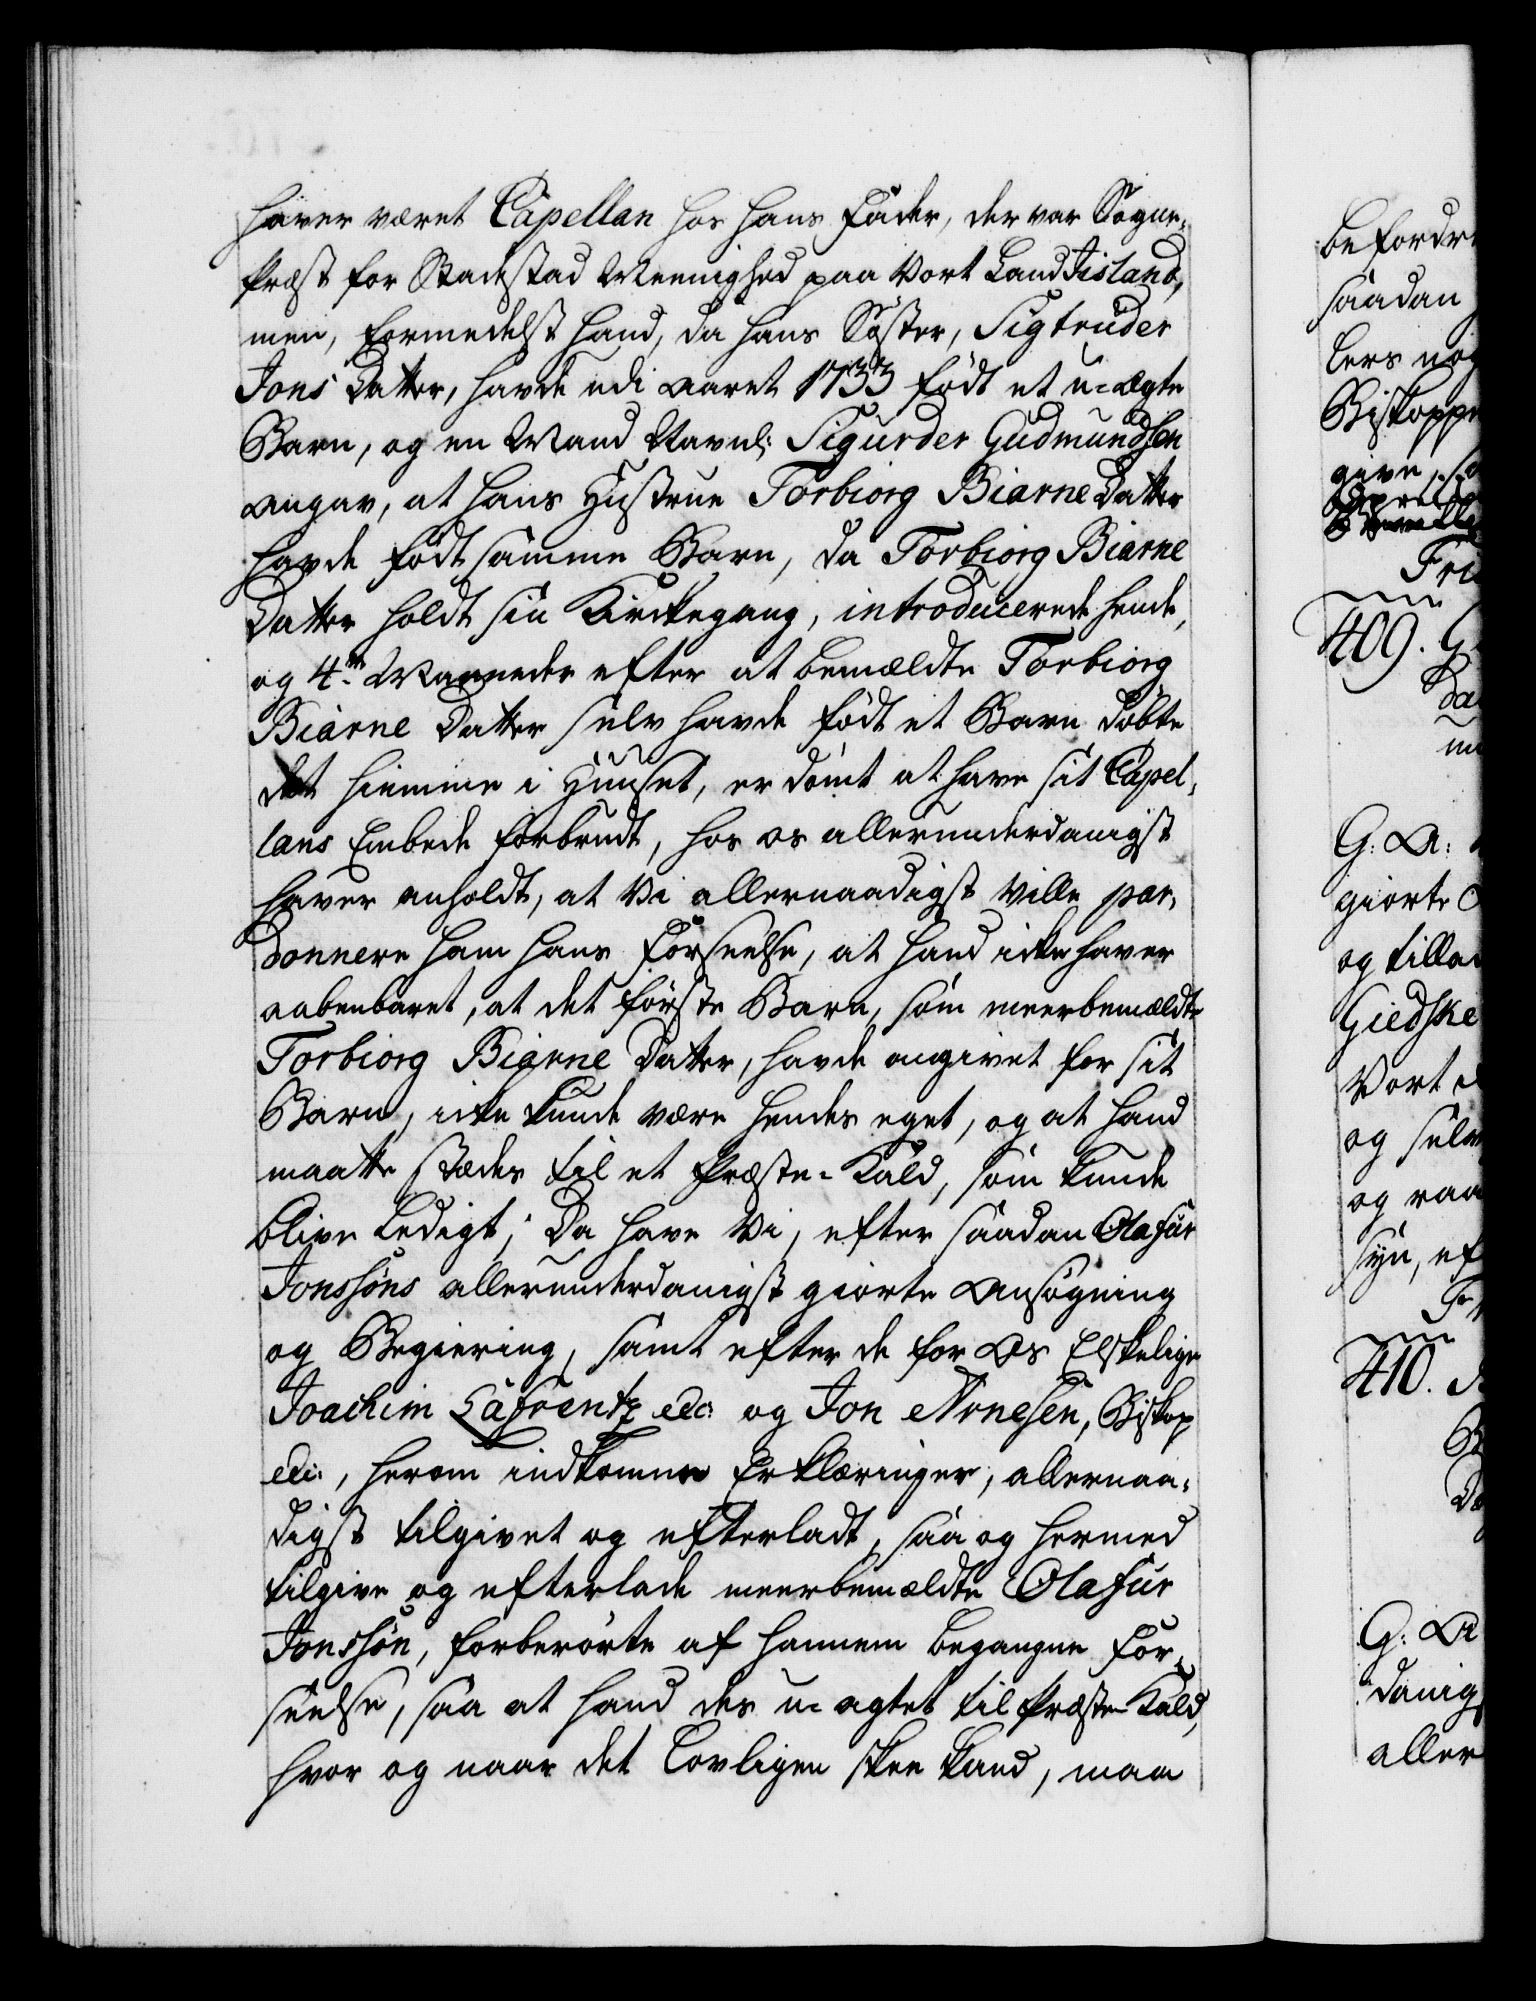 haver været Capellan hos hans Fader, der var Sogne-
Præst for Stadestad Meenighed paa Vort Land Jisland,
men, formedelst hand, da hans Søster, Sigtruder
Jons Datter, havde udi Aaret 1733 født et u-ægte
Barn, og en Mand Navnl: Sigurder Gudmundsen
angav, at hans Hustrue Torbiorg Biarne Datter
havde født samme Barn, da Torbiorg Biarne
Datter holdt sin Kirkegang, introducerede hende,
og 4re Maaneder efter at bemældte Torbiorg
Biarne Datter selv havde født et Barn døbte
det hiemme i Huuset, er dømt at have sit Capel-
lans Embede forbrudt, hos os allerunderdanigst
haver anholdt, at Vi allernaadigst ville par-
donnere ham hans Forseelse, at hand icke haver
aabenbaret, at det første Barn, som meerbemældte
Torbiorg Biarne Datter, havde angivet for sit
Barn, icke kunde være hendes eget, og at hand
maatte stædes til et Præste-Kald, som kunde
blive Ledigt; Da have Vi, efter saadan Olafur
Jonssøns allerunderdanigst giorte Ansøgning
og Begiering, samt efter de for Os Elskelige
Joachim Lafrentz etc: og Jon Arnesen, Biskop
etc:, herom indkomne Erklæringer, allernaa-
digst tilgivet og efterladt, saa og hermed
tilgive og efterlade meerbemældte Olafur
Jonssøn, forberørte af hannem begangne For-
seelse, saa at hand des u-agtet til Præste-Kald,
hvor og naar det Lovligen skee kand, maa
befordre
saadan
lers nog
Biskoppe
give, sa
Fri
409. G
Da
G: A:
giorte
og tillad
Giedske
Vort
og selv
og raa
syn, ef
410.
G: A
danig
aller